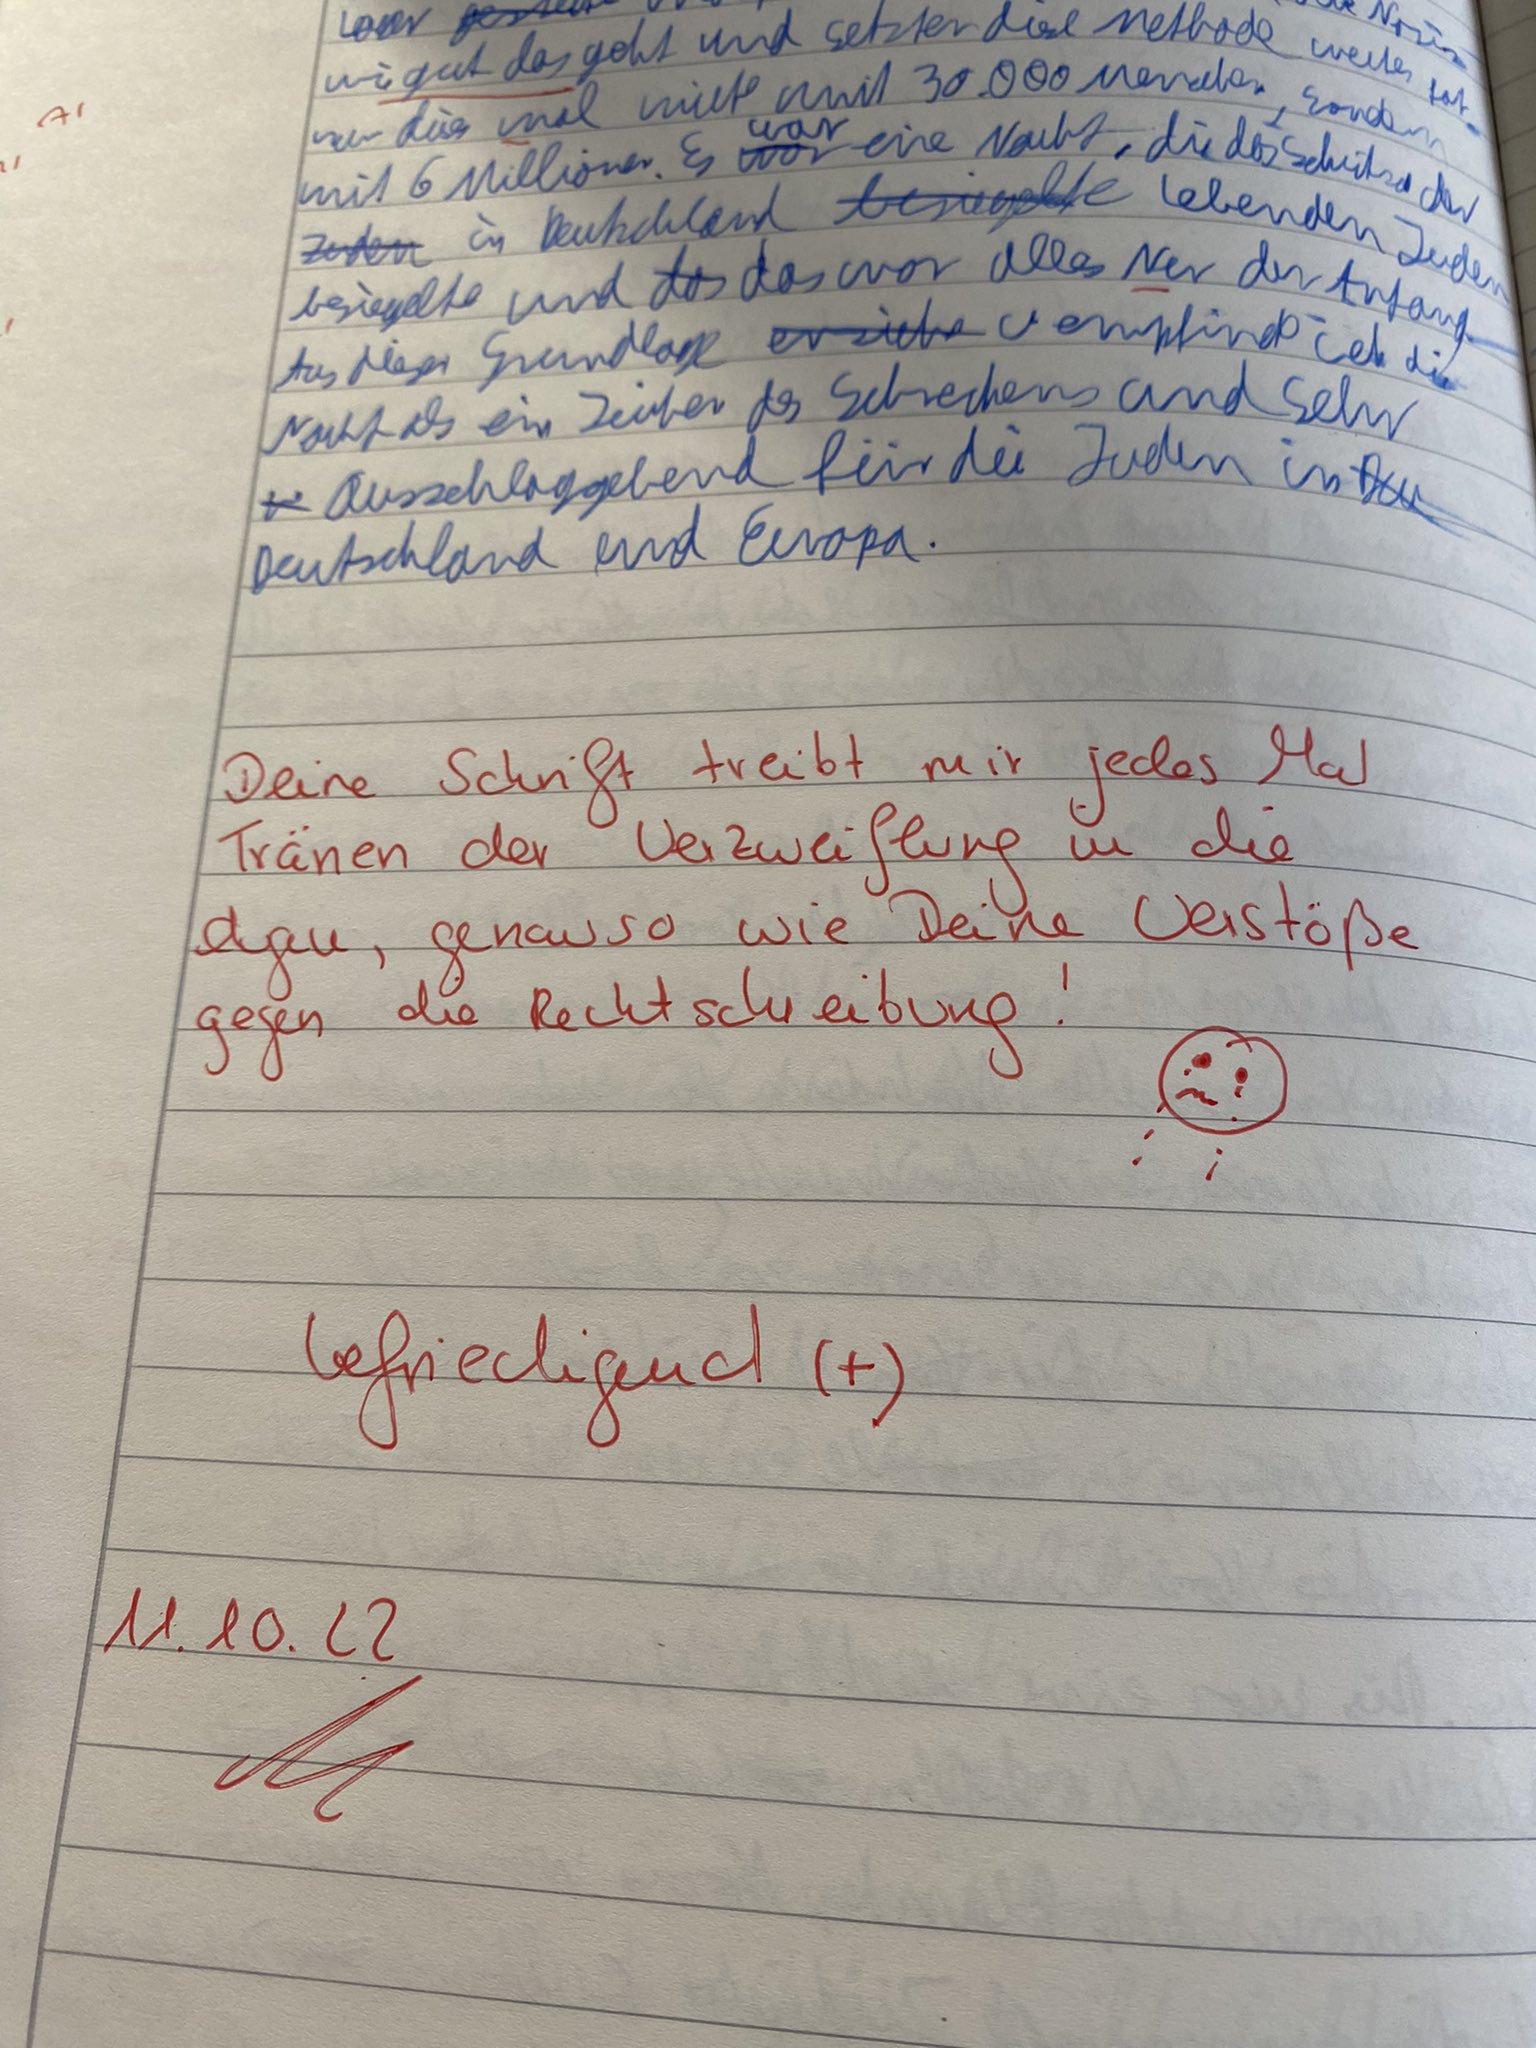 A1
war die Nazis
wie gut das geht und setzten diese Methode weiter
nur dies mal nicht mit 30.000 Menschen, sondern
mit 6 Millionen. Es war eine Nacht, die das der
Juden in Deutschland besiegelte lebenden Juden
besiegelte und das das war alles Nur der Anfang
Aus dieser Grundlage empfinde ich die
Nacht als ein Zeichen des Schreckens und Sehr
Ausschlaggebend für die Juden in
Deutschland und Europa.
Deine Schrift treibt mir jedes Mal
Tränen der Verzweiflung in die
Augen, genauso wie Deine Verstöße
gegen die Rechtschreibung!
befriedigend (+)
11.10.22